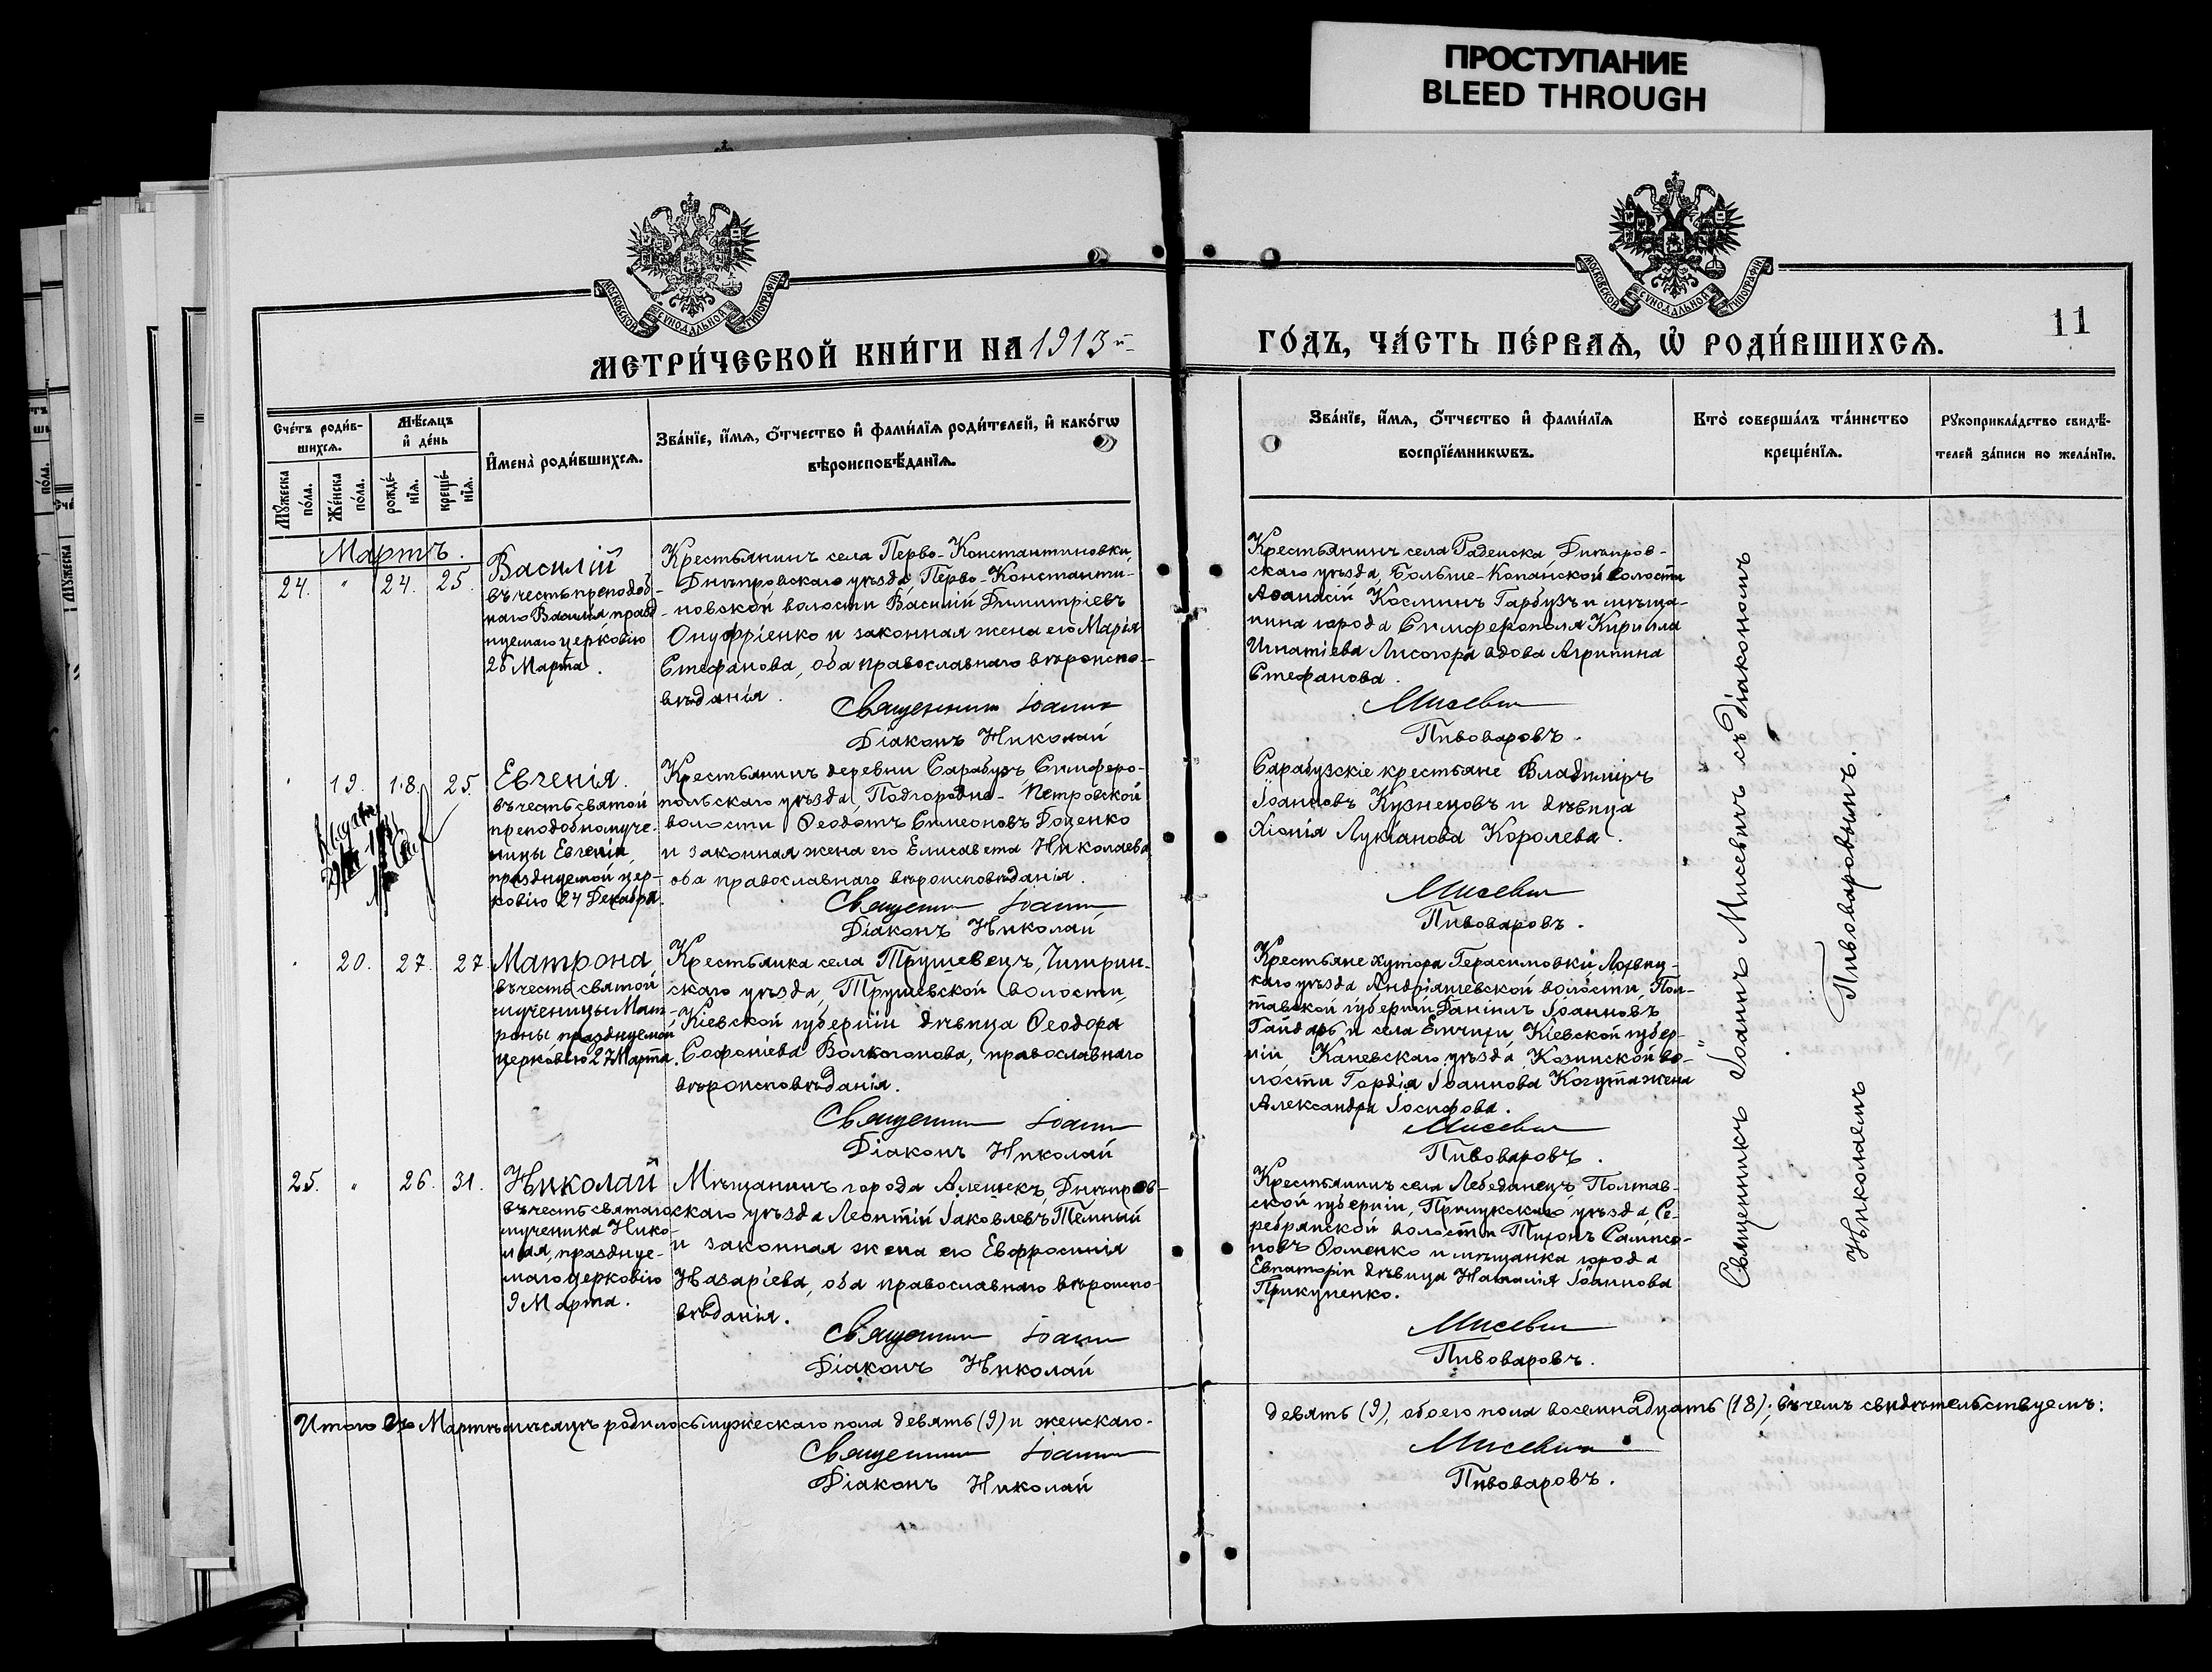 ПРОСТУПАНИЕ
BLEED THROUGH
МОСКОВСКОЙ СѴНОДАЛЬНОЙ ТИПОГРАФІИ
МОСКОВСКОЙ СѴНОДАЛЬНОЙ ТИПОГРАФІИ
11
МЕТРИ́ЧЕСКОЙ КНИ́ГИ НА 1913 й
ГО́ДЪ, ЧА́СТЬ ПЕ́РВАѦ, Ѡ҆ РОДИ́ВШИХСѦ.
Сче́тъ роди́в-
шихсѧ.
Мѣ́сѧцъ
и҆ де́нь
И҆мена̀ роди́вшихсѧ.
Зва́нїе, и҆́мѧ, о҆́тчество и҆ фами́лїѧ роди́телей, и҆ како́гѡ
вѣроисповѣ́данїѧ.
Мꙋ́жеска
по́ла.
Же́нска
по́ла.
рожде́-
нїѧ.
креще́-
нїѧ.
Зва́нїе, и҆́мѧ, о҆́тчество и҆ фами́лїѧ
воспрїе́мникѡвъ.
Кто̀ соверша́лъ та́инство
креще́нїѧ.
Рꙋкоприкла́дство свидѣ́-
телей за́писи по жела́нїю.
Мартъ.
24. " 24. 25.
Василій
въ честь преподоб-
наго Василія празд-
нуемаго церковію
26 Марта.
Крестьянинъ села Перво-Константиновки,
Днѣпровскаго уѣзда, Перво-Константи-
новской волости Василій Димитріевъ
Онуфріенко и законная жена его Марія
Стефанова, оба православнаго вѣроиспо-
вѣданія.
Священникъ Іоаннъ
Діаконъ Николай
Крестьянинъ села Гаденска Днѣпров-
скаго уѣзда, Больше-Копанской волости
Аѳанасій Косминъ Гарбузъ и мѣща-
нина города Симферополя Кирилла
Игнатіева Лисогора вдова Агрипина
Стефанова.
Мисевичъ
Пивоваровъ.
19. 18. 25.
Евгенія.
въ честь святой
преподобномуче-
ницы Евгеніи,
празднуемой цер-
ковію 24 Декабря.
Крестьянинъ деревни Сарабузъ, Симферо-
польскаго уѣзда, Подгородне-Петровской
волости Ѳеодотъ Симеоновъ Доценко
и законная жена его Елисавета Николаева
оба православнаго вѣроисповѣданія.
Священникъ Іоаннъ
Діаконъ Николай
Сарабузскіе крестьяне Владиміръ
Іоанновъ Кузнецовъ и дѣвица
Хіонія Лукіанова Королева.
Мисевичъ
Пивоваровъ.
20. 27. 27.
Матрона
въ честь святой
мученицы Мат-
роны, празднуемой
церковію 27 Марта.
Крестьянка села Трушевецъ, Чигрин-
скаго уѣзда, Трушевской волости,
Кіевской губерніи дѣвица Ѳеодора
Софоніева Волкогонова, православнаго
вѣроисповѣданія.
Священникъ Іоаннъ
Діаконъ Николай
Крестьяне хутора Герасимовки Лохвиц-
каго уѣзда Андріяшевской волости, Пол-
тавской губерніи Даніилъ Іоанновъ
Гайдарь и села Кіевской губер-
ніи Каневскаго уѣзда, Козинской во-
лости Гордія Іоаннова Когута жена
Александра Іосифова.
Мисевичъ
Пивоваровъ.
25. " 26. 31.
Николай
въ честь святаго
мученика Нико-
лая, праздnуе-
маго церковію
9 Марта.
Мѣщанинъ города Алешекъ, Днѣпров-
скаго уѣзда Леонтій Іаковлевъ Тёмный
и законная жена его Евфросинія
Назаріева, оба православнаго вѣроиспо-
вѣданія.
Священникъ Іоаннъ
Діаконъ Николай
Крестьянинъ села Лебединецъ, Полтав-
ской губерніи, Прилукскаго уѣзда, Се-
ребрянской волости Тихонъ Сампсо-
новъ Ѳоменко и мѣщанка города
Евпаторіи дѣвица Наталія Іоаннова
Прикупенко.
Мисевичъ
Пивоваровъ.
Священникъ Іоаннъ Мисевичъ съ діакономъ
Николаемъ Пивоваровымъ.
Итого въ Мартѣ мѣсяцѣ родилось мужескаго пола девять (9) и женскаго-
девять (9), обоего пола восемнадцать (18); въ чемъ свидѣтельствуемъ:
Священникъ Іоаннъ
Діаконъ Николай
Мисевичъ
Пивоваровъ.